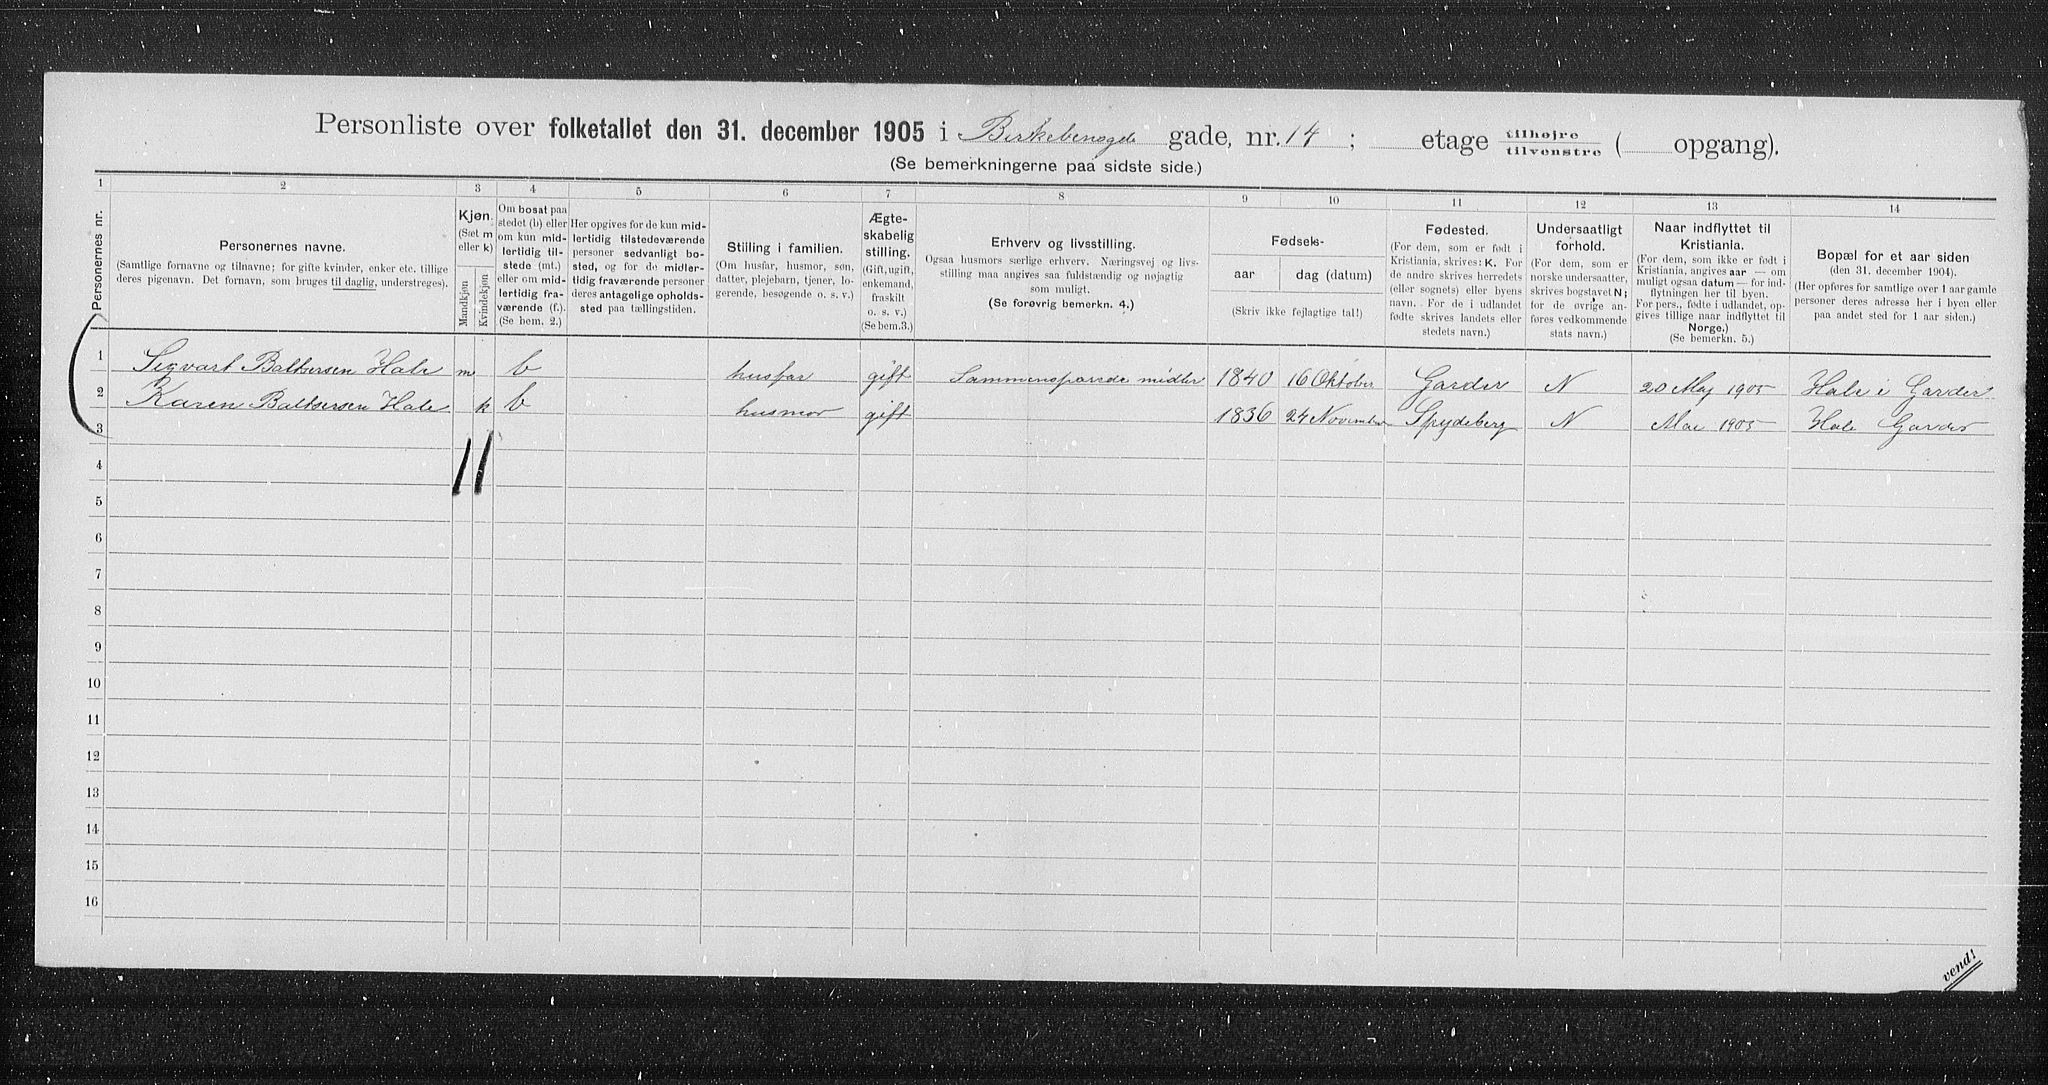 Personliste over folketallet den 31. december 1905 i Birkebensgde gade, nr. 14 ; etage tilhøjre tilvenstre ( opgang).
(Se bemerkningerne paa sidste side.)
1 2 3 4 5 6 7 8 9 10 11 12 13 14
Personernes nr.
Personernes navne.
(Samtlige fornavne og tilnavne; for gifte kvinder, enker etc. tillige
deres pigenavn. Det fornavn, som bruges til daglig, understreges).
Kjøn.
(Sæt m
eller k)
Mandkjøn
Kvindekjøn
Om bosat paa
stedet (b) eller
om kun mid-
lertidig til-
stede (mt.)
eller om mid-
lertidig fra-
værende (f.).
(Se bem. 2.)
Her opgives for de kun mid-
lertidig tilstedeværende
personer sedvanligt bo-
sted, og for de midler-
tidig fraværende personer
deres antagelige opholds-
sted paa tællingstiden.
Stilling i familien.
(Om husfar, husmor, søn,
datter, plejebarn, tjener, lo-
gerende, besøgende o. s. v.)
Ægte-
skabelig
stilling.
(Gift, ugift,
enkemand,
fraskilt
o. s. v.)
(Se bem.3.)
Erhverv og livsstilling.
Ogsaa husmors særlige erhverv. Næringsvej og livs-
stilling maa angives saa fuldstændig og nøjagtig
som muligt.
(Se forøvrig bemerkn. 4.)
Fødsels-
aar dag (datum)
(Skriv ikke fejlagtige tal!)
Fødested.
(For dem, som er født i
Kristiania, skrives: K. For
de andre skrives herredets
(eller sognets) eller byens
navn. For de i udlandet
fødte skrives landets eller
stedets navn.)
Undersaatligt
forhold.
(For dem, som er
norske undersaatter,
skrives bogstavet N;
for de øvrige an-
føres vedkommende
stats navn.)
Naar indflyttet til
Kristiania.
(For dem, som ikke er født i
Kristiania, angives aar — om
muligt ogsaa datum — for ind-
flytningen her til byen.
For pers., fødte i udlandet, op-
gives tillige naar indflyttet til
Norge.)
(Se bemerkn. 5.)
Bopæl for et aar siden
(den 31. december 1904).
(Her opføres for samtlige over 1 aar gamle
personer deres adresse her i byen eller
paa andet sted for 1 aar siden.)
1 Sigvart Baltsersen Hale m b husfar gift Sammensparede midler 1840 16 Oktober Garder N 20 Maj 1905 Hale i Garder
2 Karen Baltsersen Hale k b husmor gift 1836 24 November Spydeberg N Mai 1905 Hale Garder
3
4
5
6
7
8
9
10
11
12
13
14
15
16
vend!